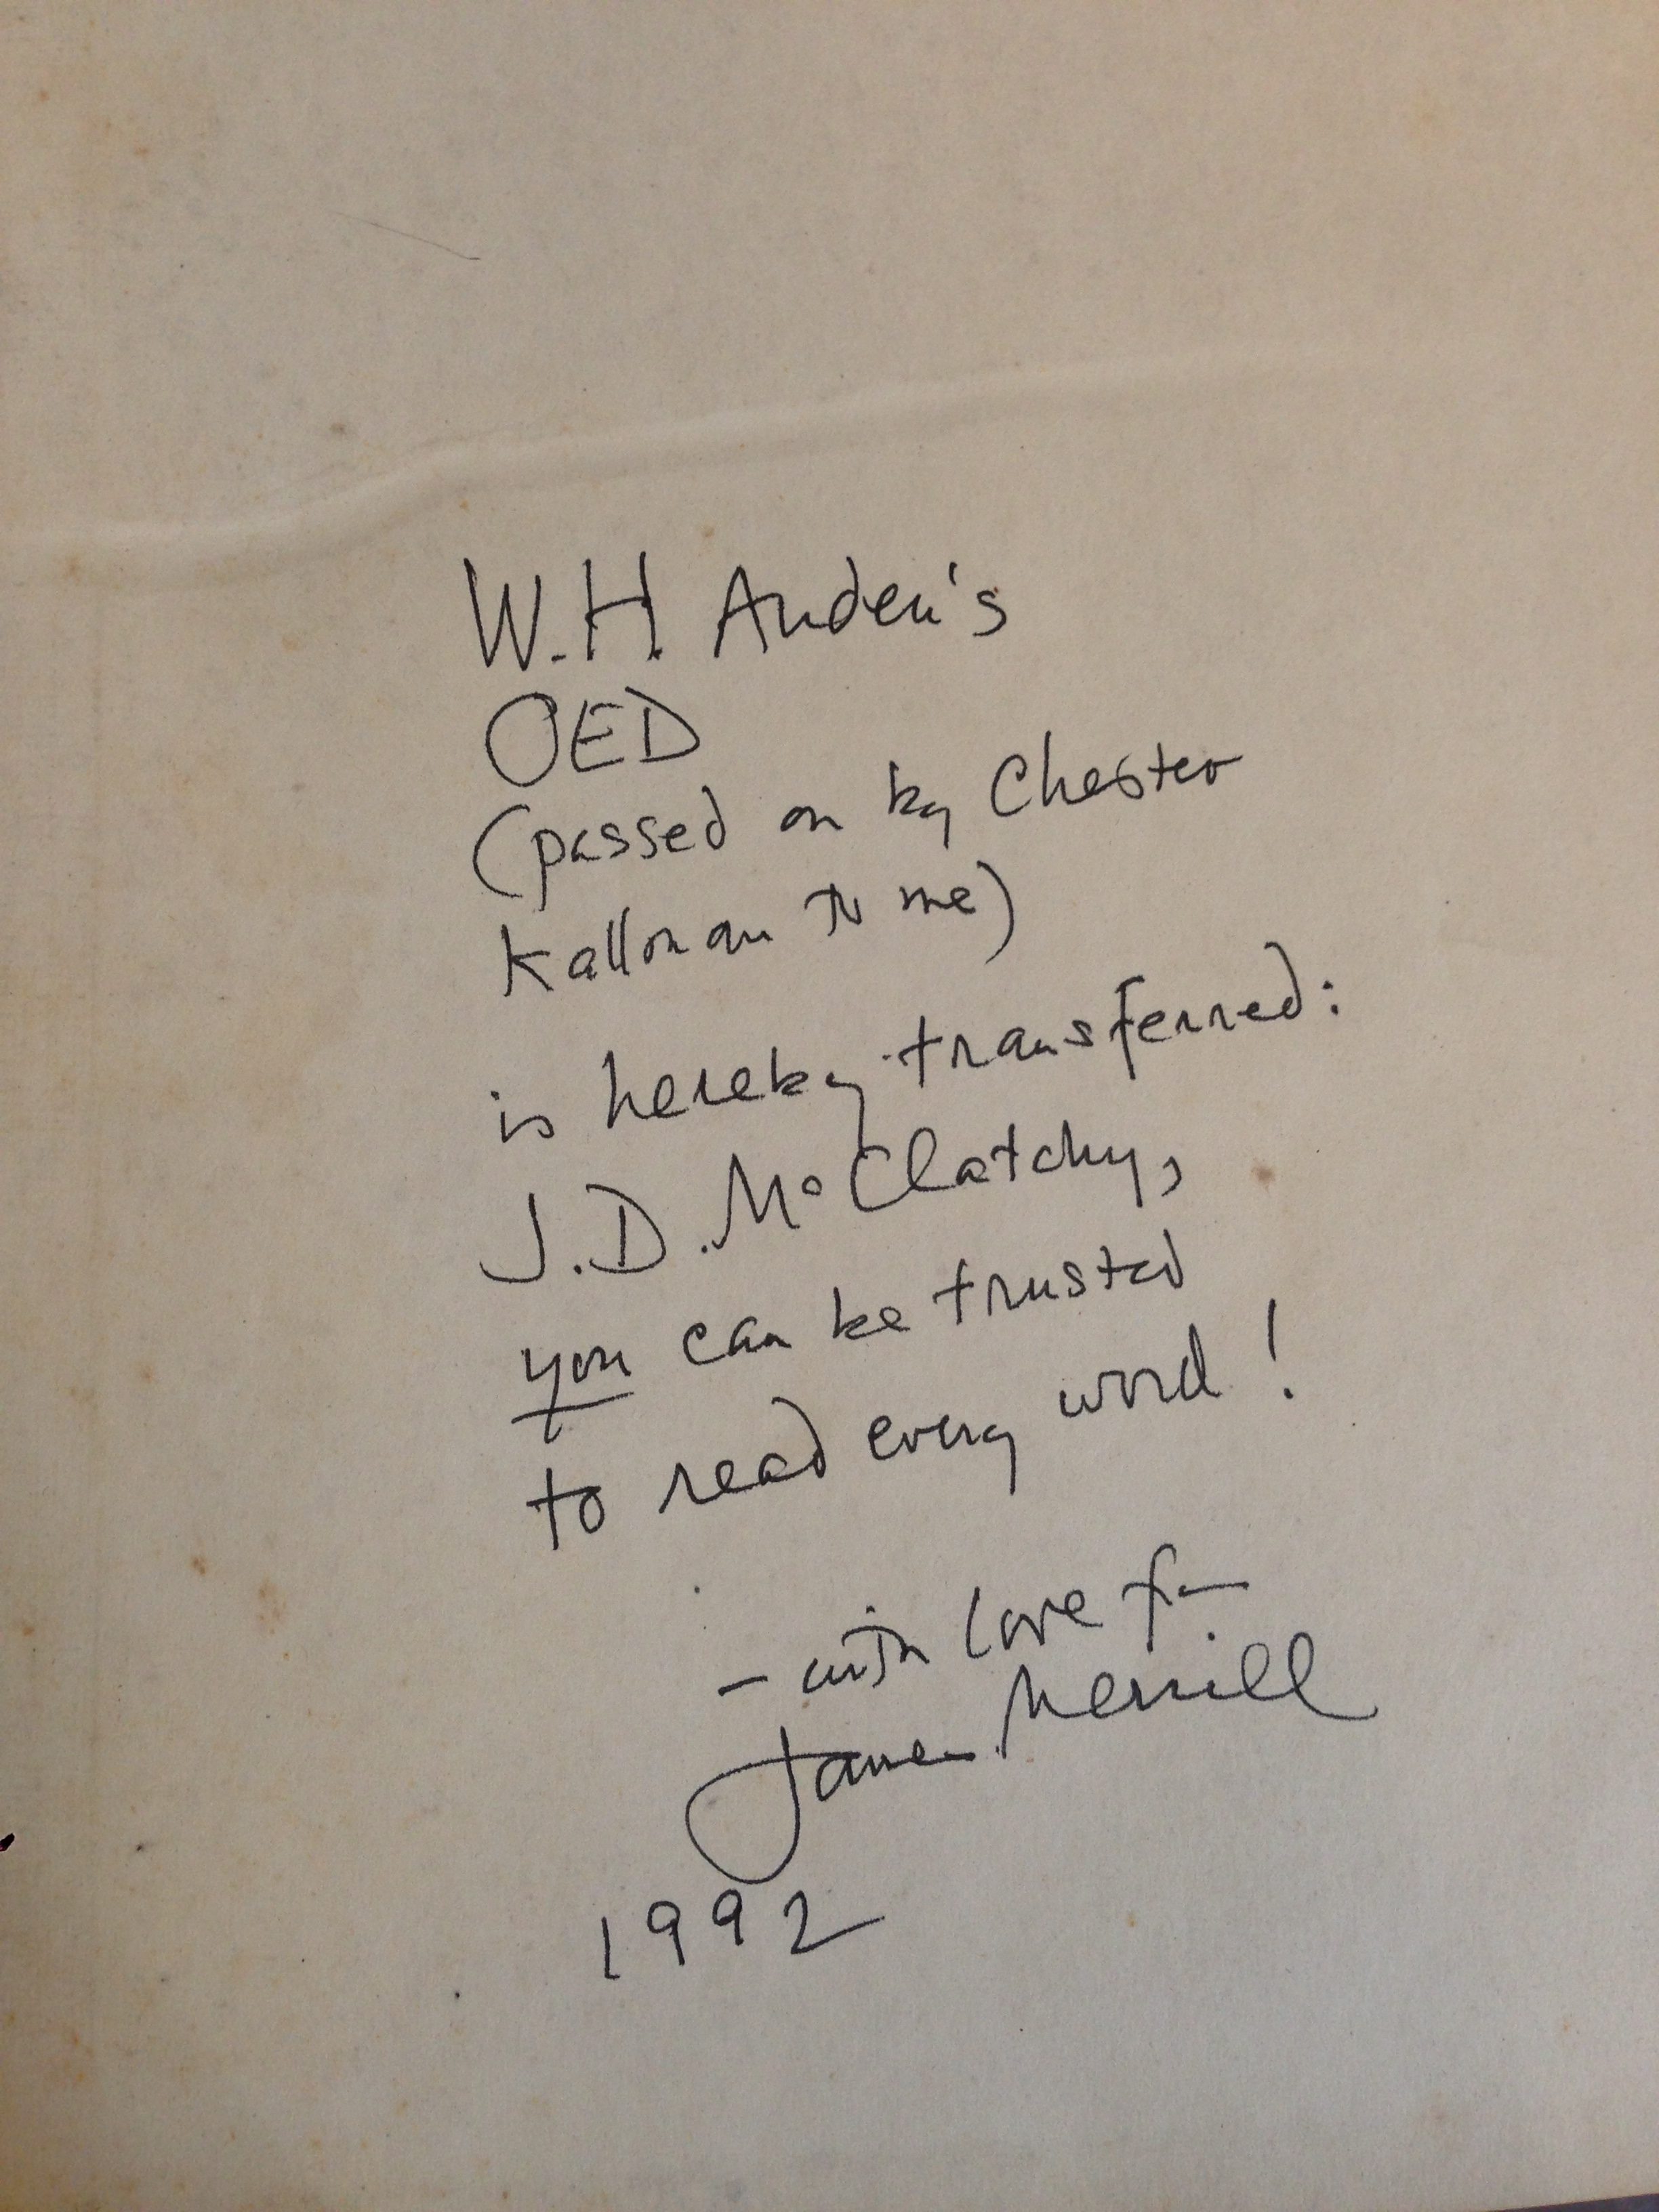 W.H. Auden's
OED
(passed on by Chester
Kallman to me)
is hereby transferred:
J.D. McClatchy,
you can be trusted
to read every word!
– with love from
James Merrill
1992